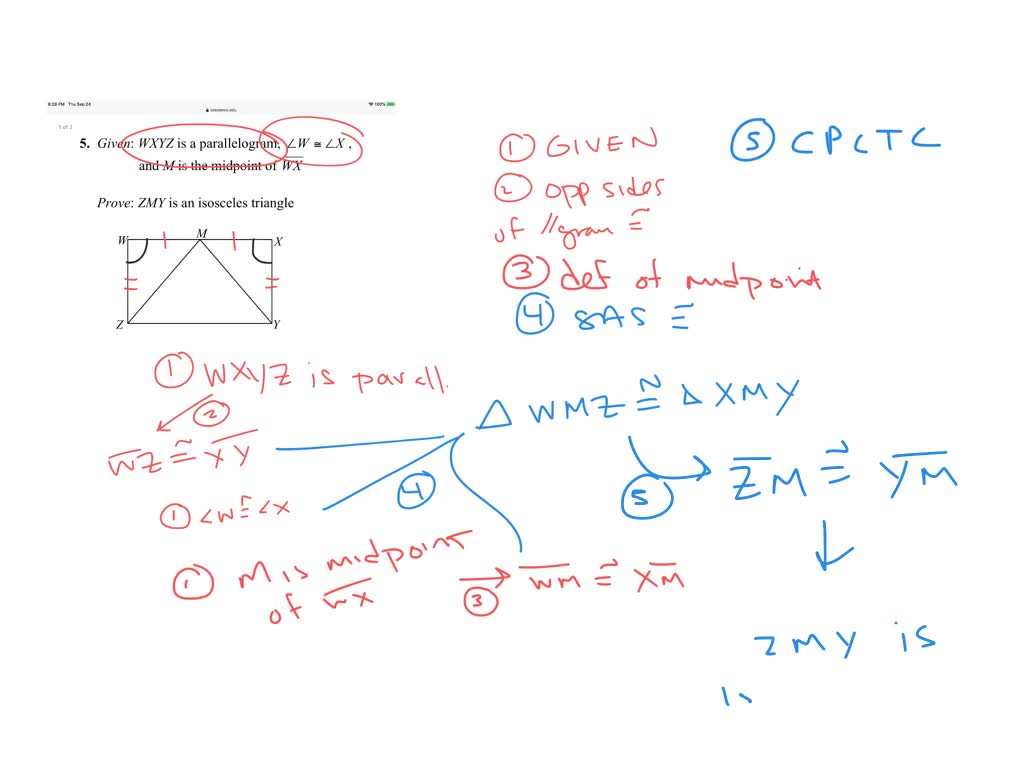 9:28 PM Thu Sep 24
100%
1 of 2
5. Given: WXYZ is a parallelogram, ∠W ≅ ∠X,
and M is the midpoint of WX
Prove: ZMY is an isosceles triangle
W M X
Z Y
① GIVEN
② opp sides
of //gram ≅
③ def of midpoint
④ SAS ≅
⑤ CPCTC
① WXYZ is parall.
②
WZ ≅ XY
① <W ≅ <X
① M is midpoint
of WX
③ WM ≅ XM
④
△ WMZ ≅ △ XMY
⑤ ZM ≅ YM
ZMY is